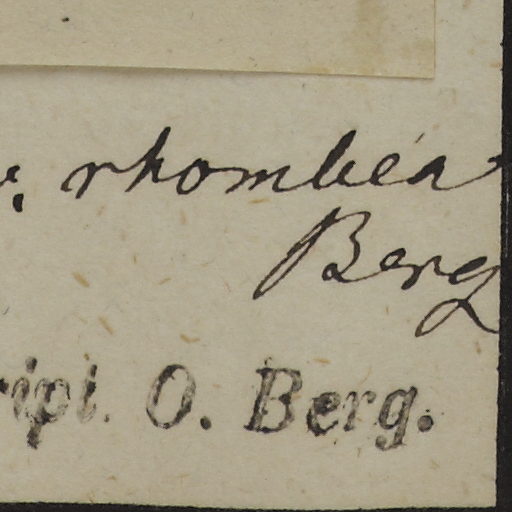 rhombea
Berg
ripi. O. Berg.